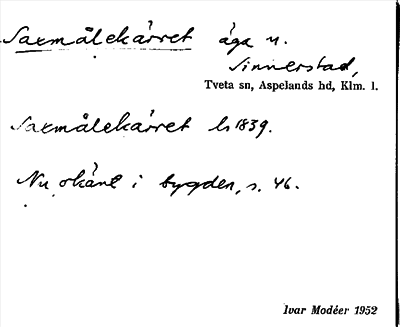 Saxmålekärret äga u.
Sinnerstad,
Tveta sn, Aspelands hd, Klm. l.
Saxmålekärret ls 1839.
Nu okänt i bygden, s. 46.
Ivar Modéer 1952